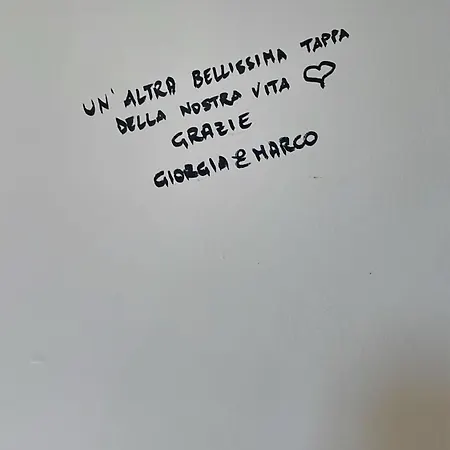 UN' ALTRA BELLISSIMA TAPPA
DELLA NOSTRA VITA ♡
GRAZIE
GIORGIA E MARCO